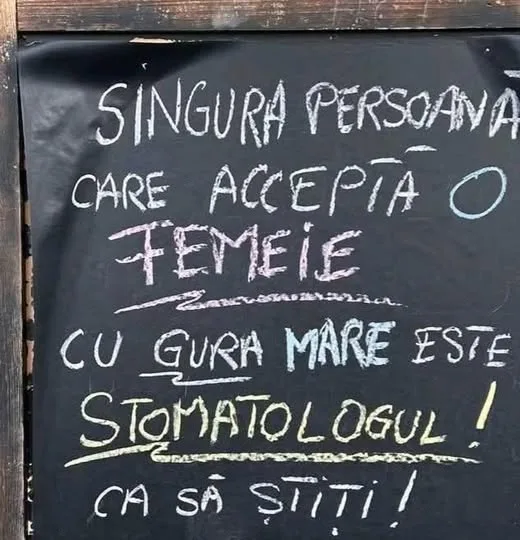 SINGURA PERSOANĂ
CARE ACCEPTĂ O
FEMEIE
CU GURA MARE ESTE
STOMATOLOGUL!
CA SĂ ȘTIȚI!